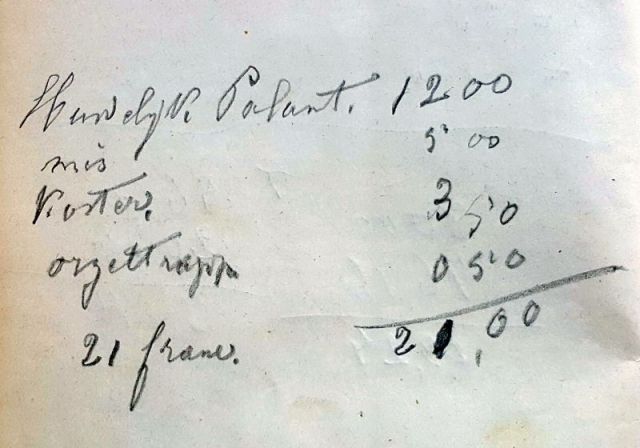 Huwelijk Palant. 1200
mis 5 00
Koster. 3 50
orgettrapp 0 50
21 franc. 21,00